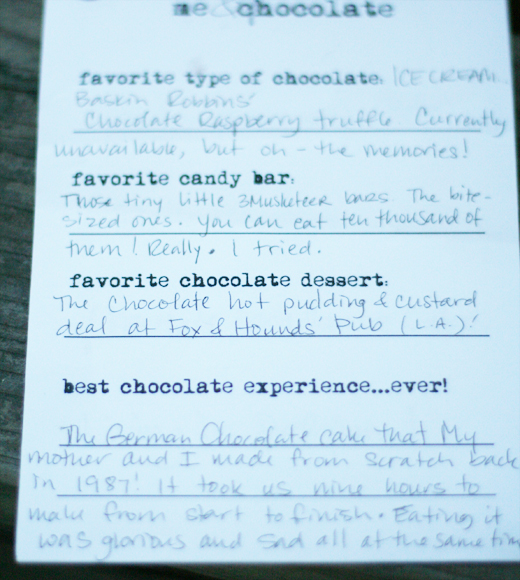 me & chocolate
favorite type of chocolate: ICE CREAM.
Baskin Robbins'
Chocolate Raspberry truffle. Currently
unavailable, but oh - the memories!
favorite candy bar:
Those tiny little 3Musketeer bars. The bite-
sized ones. You can eat ten thousand of
them! Really. I tried.
favorite chocolate dessert:
The Chocolate hot pudding & custard
deal at Fox & Hounds' Pub (L.A.)!
best chocolate experience...ever!
The German Chocolate cake that My
mother and I made from scratch back
in 1987! It took us nine hours to
make from start to finish. Eating it
was glorious and sad all at the same tim